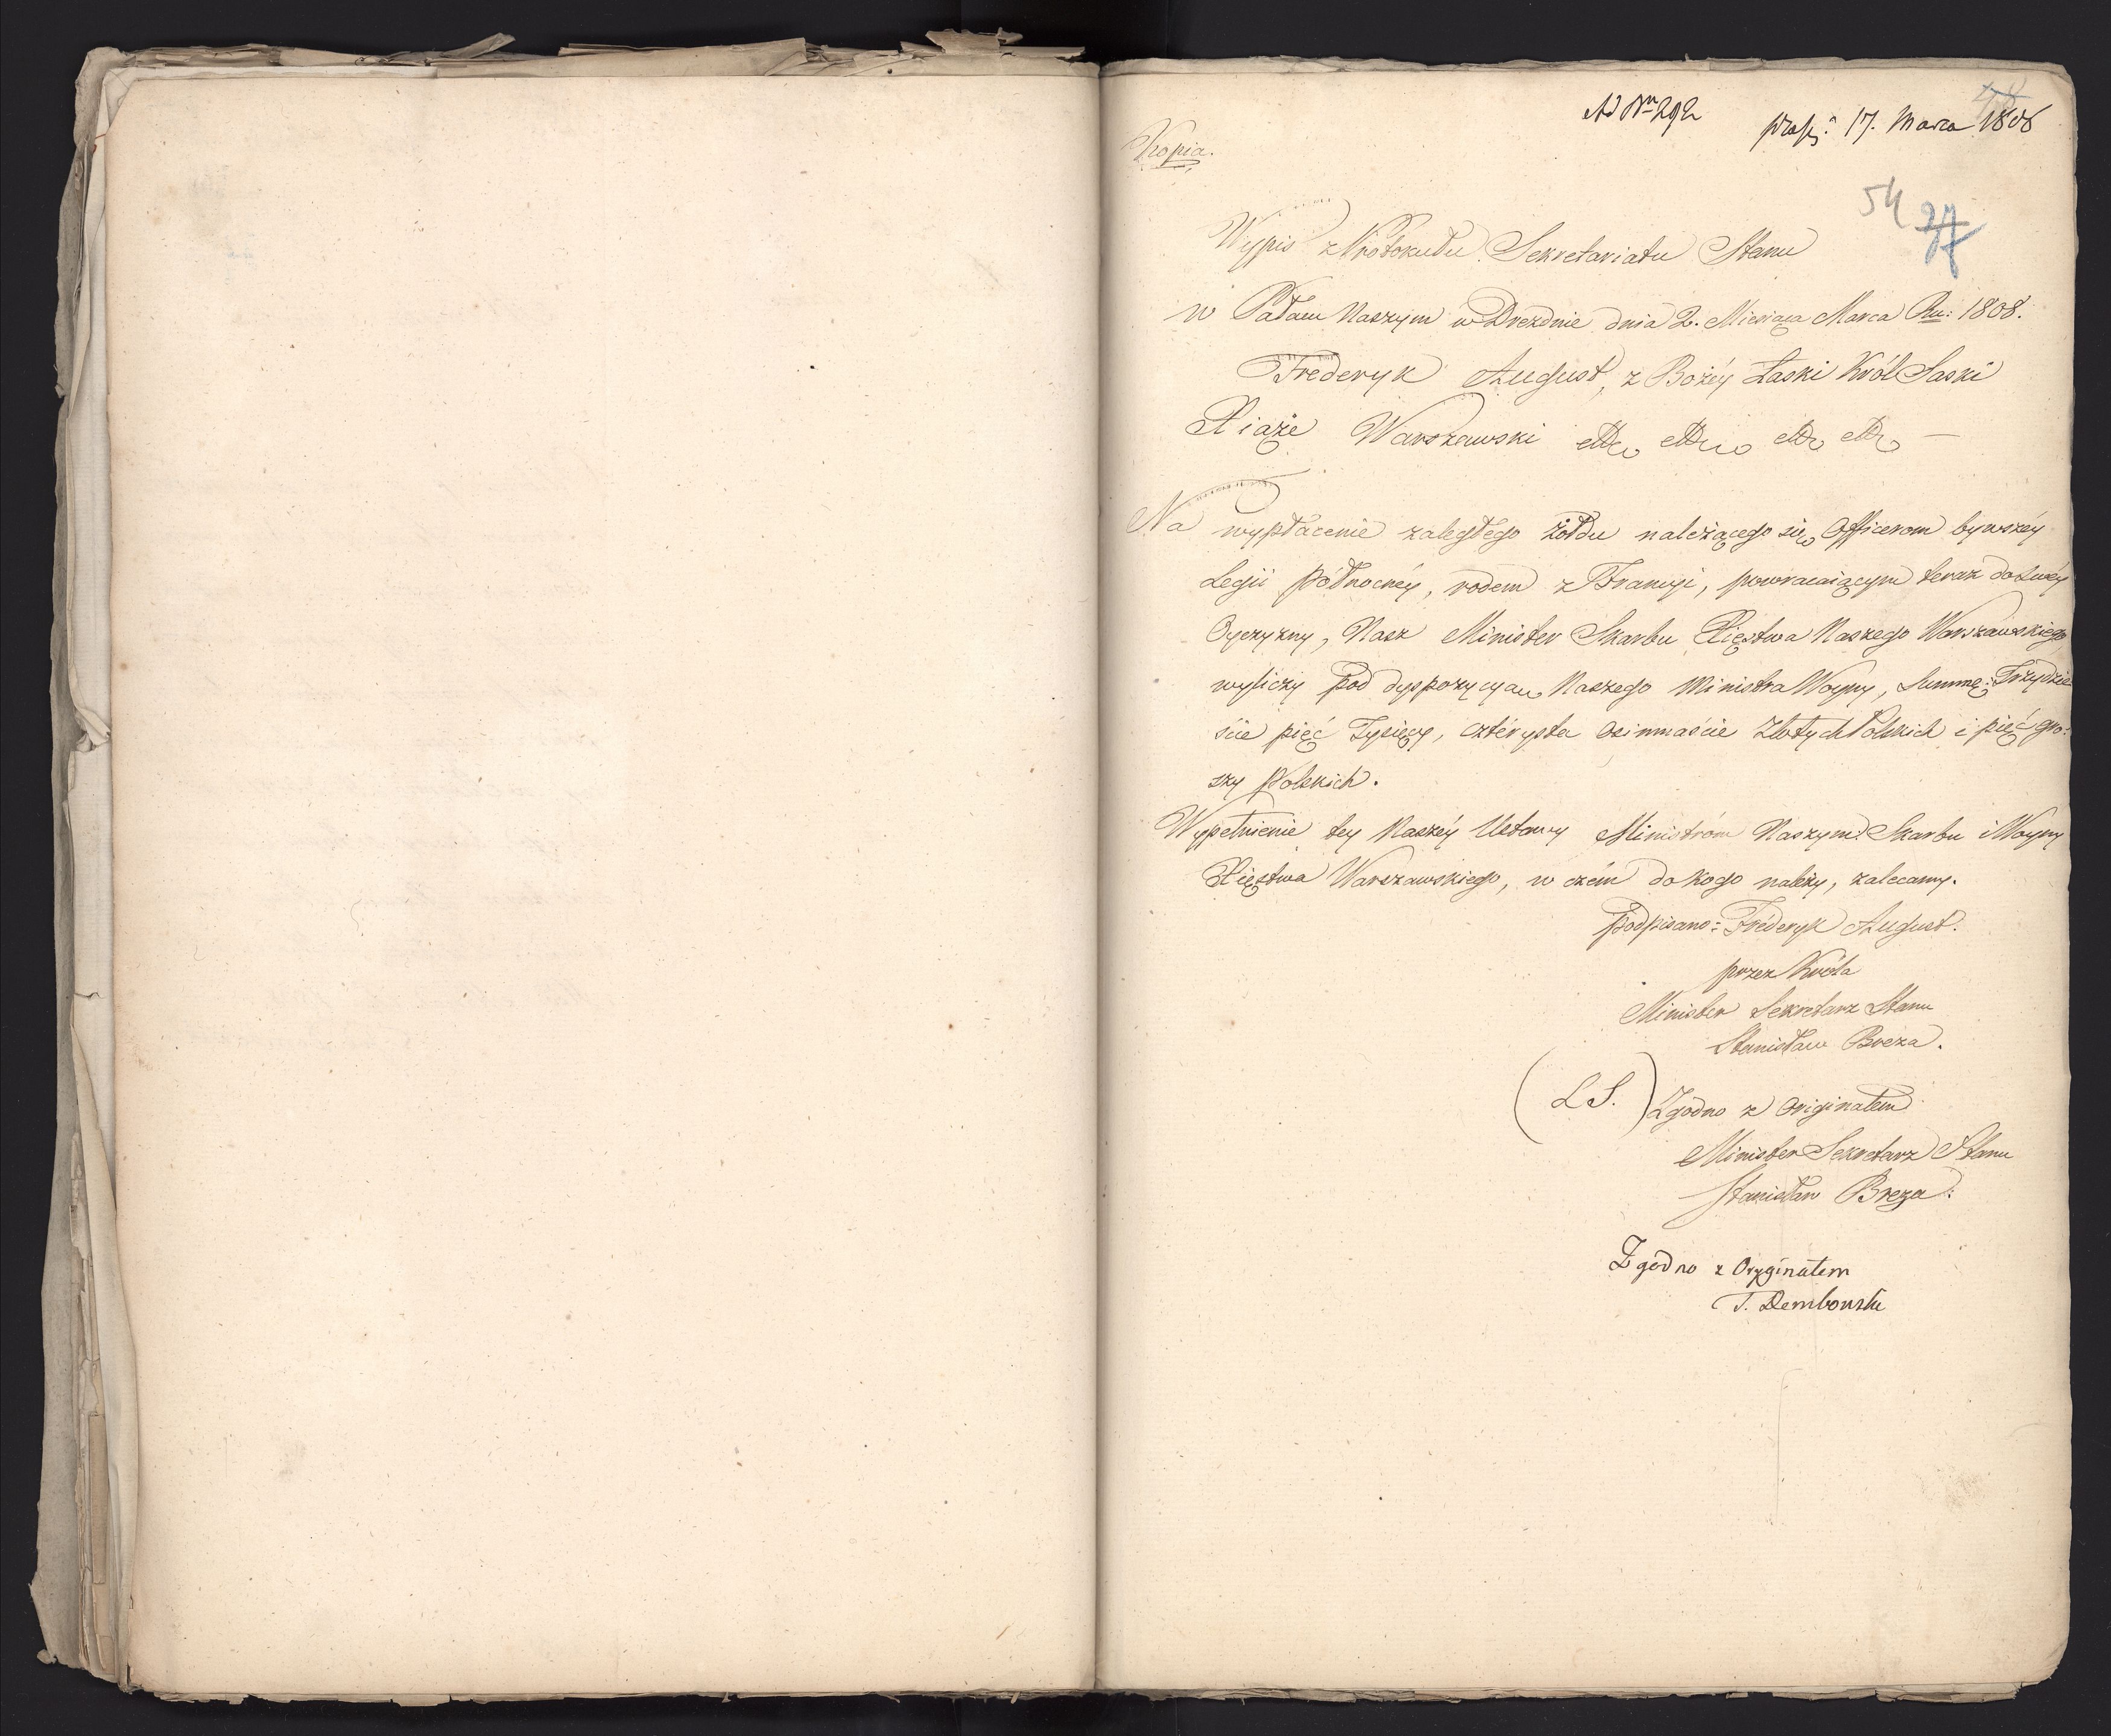 Ad Nr 292
præs: 17. Marca 1808
Kopia.
54
27
Wypis z Protokułu Sekretariatu Stanu
w Pałacu Naszym w Dreznie dnia 2. Miesiąca Marca Ru: 1808.
Frederyk August, z Bożéy Łaski Król Saski
Xiąże Warszawski etc etc etc etc —
Na wypłacenie zaległego żołdu należącego się Officerom bywszéy
Legii Północnéy, rodem z Francyi, powracaiącym teraz do Swéy
Oyczyzny, Nasz Minister Skarbu Xięstwa Naszego Warszawskiego
wyliczy pod dyspozycyą Naszego Ministra Woyny, Summę: Trzydzie-
ście pięć Tysięcy, cztérysta osimnaście Złotych Polskich i pięć gro-
szy Polskich.
Wypełnienie tey Naszéy Ustawy Ministróm Naszym: Skarbu i Woyny
Xięstwa Warszawskiego, w czém do kogo należy, zalecamy.
Podpisano: Fréderyk August.
przez Króla
Minister Sekretarz Stanu
Stanisław Breza.
(L S.) Zgodno z Originałem
Minister Sekretarz Stanu
Stanisław Breza:
Zgodno z Oryginałem
T. Dembowski